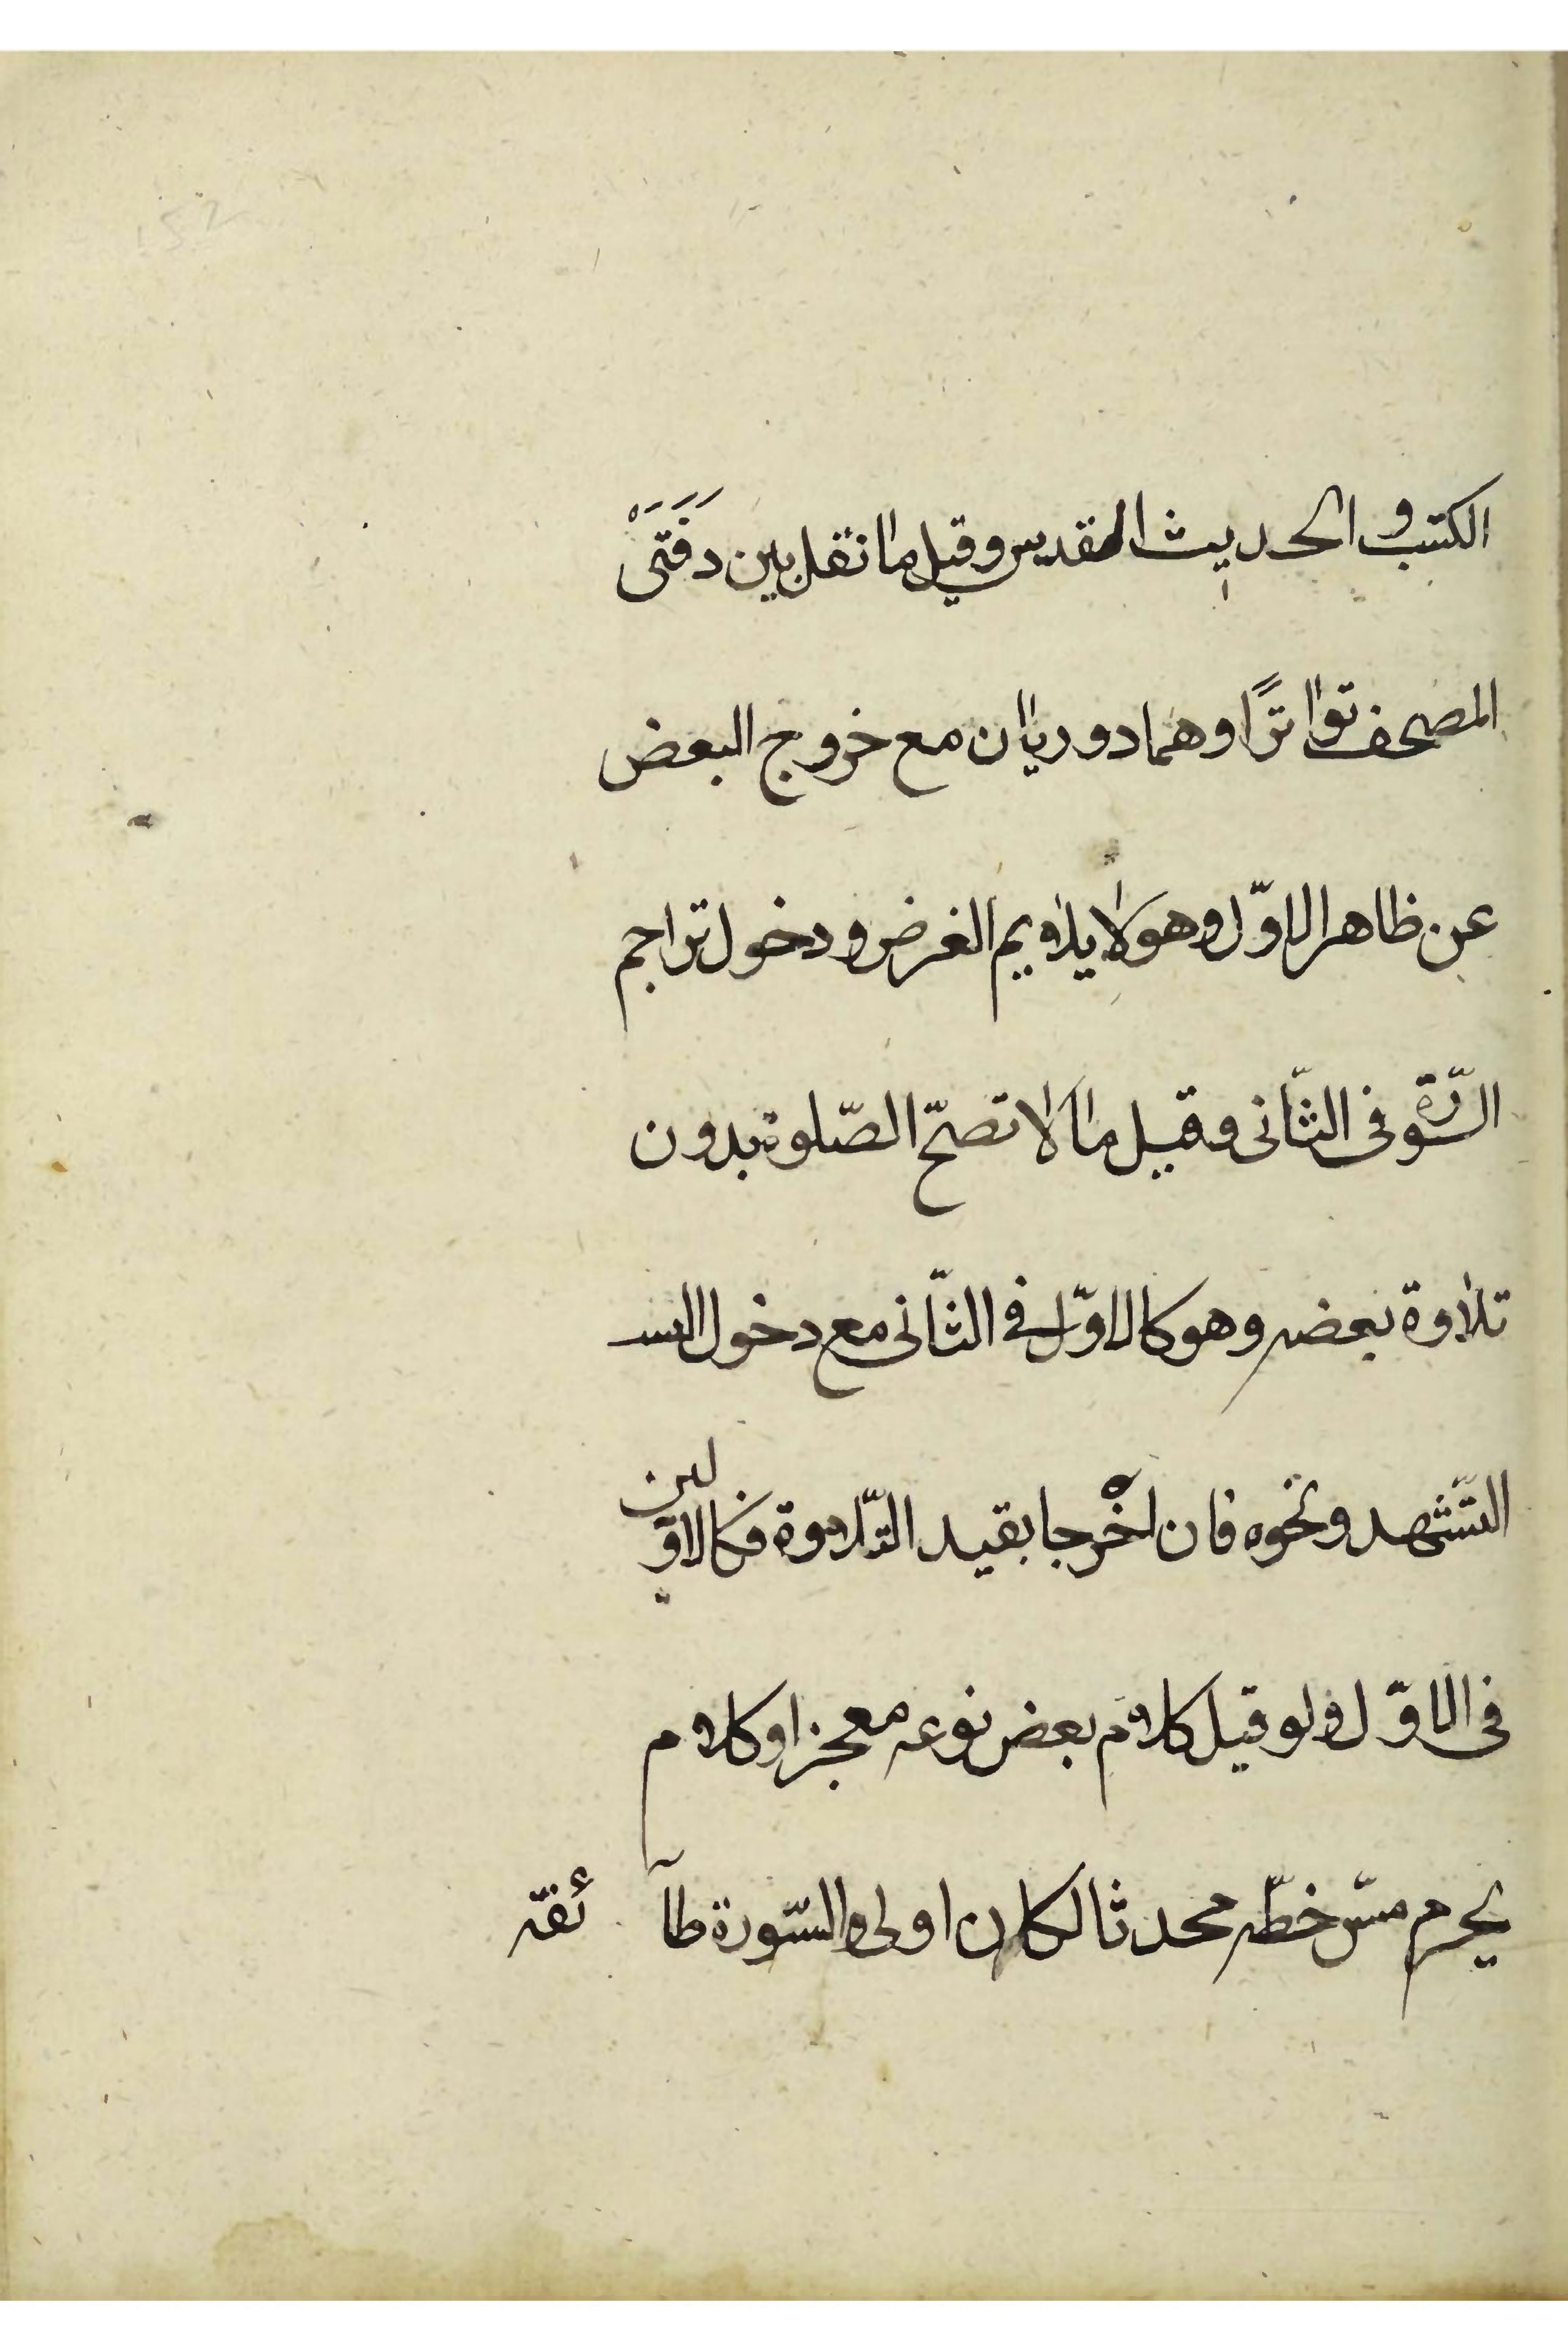 الكتب و الحديث المقدس وقيل ما نقل بين دَفَتَىْ
المصحف تواترًا وهما دوريان مع خروج البعض
عن ظاهر الاوّل وهو لا يلايم الغرض ودخول تراجم
السّورة فى الثّانى وقيل ما لا تصحّ الصّلوة بدون
تلاوة بعضه وهو كالاوّل فى الثّانى مع دخول
التّشهد ونحوه فان اخرجا بقيد التّلاوة فكالاوّلين
فى الاوّل ولو قيل كلام بعض نوعه معجز او كلام
يحرم مسّ خطّه محدثا لكان اولى والسّورة طآئفة